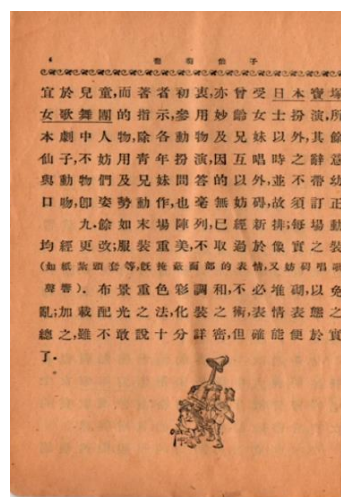 葡萄仙子
宜於兒童,而著者初衷,亦曾受日本寶塚
女歌舞團的指示,參用妙齡女士扮演,所
本劇中人物,除各動物及兄妹以外,其餘
仙子,不妨用青年扮演,因唱時之辭意
與動物們及兄妹問答的以外,並不帶幼
口吻,即姿勢動作,也毫無妨碍,故須訂正.
九.餘如末場陣列,已經新排;每場動
均經更改;服裝重美,不取過於像實之裝
(如紙紮頭套等,旣掩蔽面部的表情,又妨碍唱歌
聲響).布景重色彩調和,不必堆砌,以免
亂;加載配光之法,化裝之術,表情表態之
總之,雖不敢說十分詳密,但確能便於實
了.